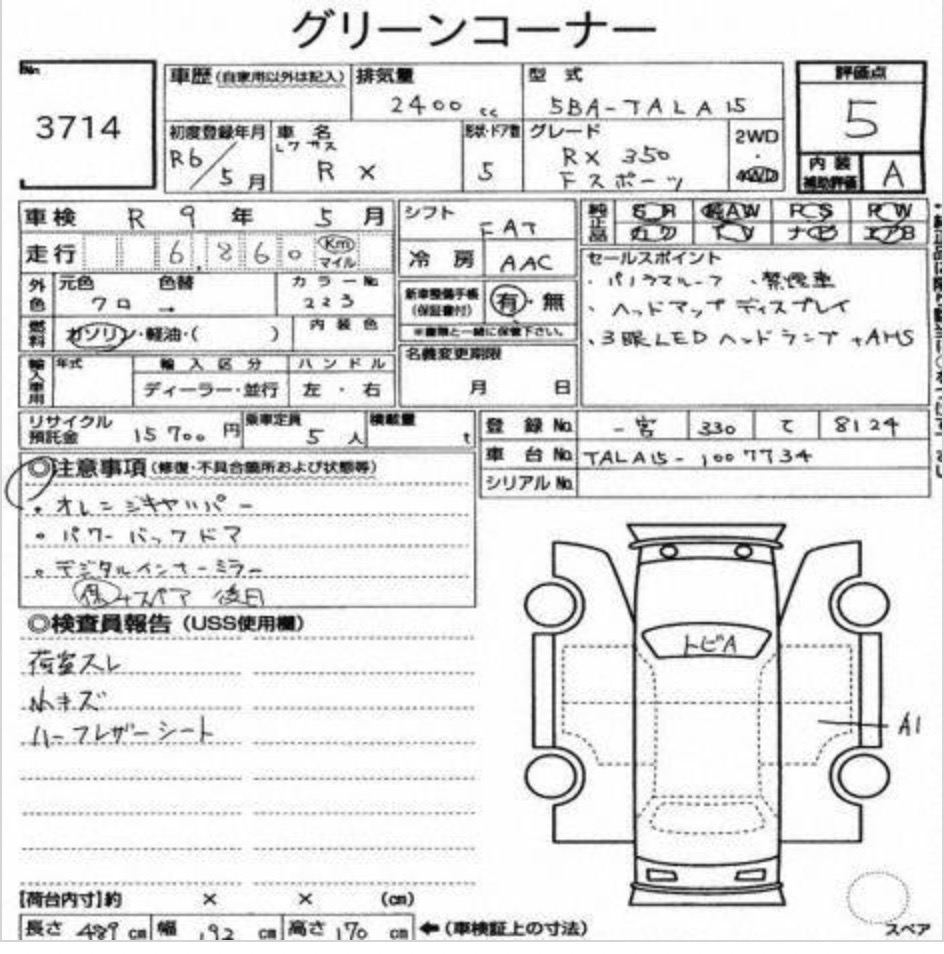 グリーンコーナー
No.
3714
車歴 (自家用以外は記入)
排気量
2400 cc
型式
5BA-TALA15
評価点
5
初度登録年月
R6/5月
車名
レクサス
RX
形状・ドア数
5
グレード
RX 350
Fスポーツ
2WD
・
4WD
内装
補助評価
A
車検 R 9 年 5 月
走行 6,860 Km マイル
外色
元色 色替
クロ →
カラーNo.
223
燃料
ガソリン・軽油・( )
内装色
輸入車用
年式
輸入区分
ディーラー・並行
ハンドル
左・右
シフト
FAT
冷房 AAC
新車整備手帳
(保証書付)
有・無
※書類と一緒に保管下さい。
名義変更期限
月 日
純正品
SR 純AW PS PW
カワ TV ナビ エアB
セールスポイント
・パノラマルーフ ・禁煙車
・ヘッドマップディスプレイ
・3眼LEDヘッドランプ+AHS
リサイクル
預託金 15700円
乗車定員
5人
積載量
t
登録No. 一宮 330 て 8124
車台No. TALA15-1007734
シリアルNo.
◎注意事項 (修復・不具合箇所および状態等)
・オレンジキャリパー
・パワーバックドア
・デジタルインナーミラー
保+スペア 後日
◎検査員報告 (USS使用欄)
荷室スレ
小キズ
ハーフレザーシート
トビA
A1
【荷台内寸】約 × × (cm)
長さ 489 cm 幅 192 cm 高さ 170 cm ←(車検証上の寸法)
スペア